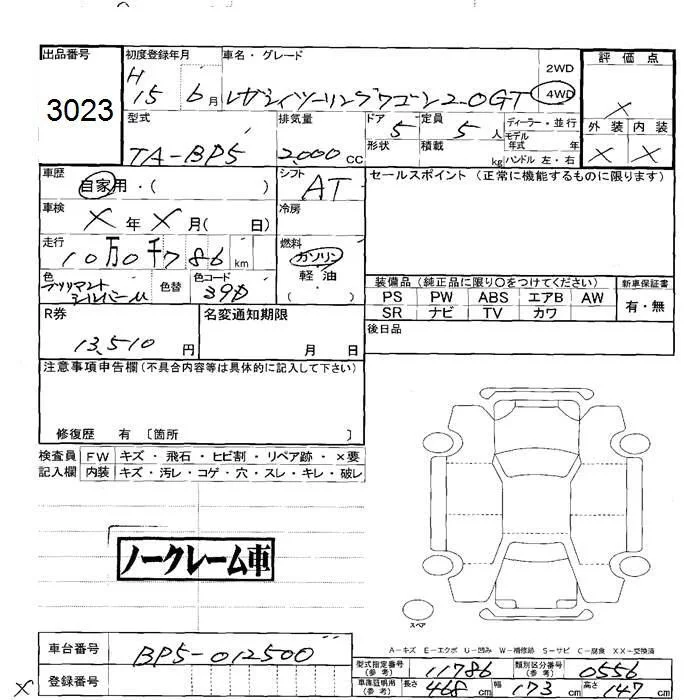 出品番号
3023
初度登録年月
H 15 6月
車名・グレード
レガシィツーリングワゴン2.0GT
2WD
4WD
評価点
X
外装 内装
X X
型式
TA-BP5
排気量
2000 CC
ドア 5
定員 5 人
ディーラー・並行
モデル
年式 年
形状
積載 kg
ハンドル 左・右
車歴
自家用・( )
シフト
AT
セールスポイント (正常に機能するものに限ります)
車検
X 年 X 月( 日)
冷房
走行
10万0千786 km
燃料
ガソリン
軽油
( )
色
ブリリアント
シルバーM
色替
色コード
39D
装備品 (純正品に限り〇をつけてください)
PS PW ABS エアB AW
SR ナビ TV カワ
新車保証書
有・無
R券
13,510 円
名変通知期限
月 日
後日品
注意事項申告欄(不具合内容等は具体的に記入して下さい)
修復歴 有 〔箇所 〕
検査員 FW キズ・飛石・ヒビ割・リペア跡・×要
記入欄 内装 キズ・汚レ・コゲ・穴・スレ・キレ・破レ
ノークレーム車
スペア
A-キズ E-エクボ U-凹み W-補修跡 S-サビ C-腐食 XX-交換済
車台番号
BP5-012500
登録番号
X
型式指定番号
(参考)
11786
類別区分番号
(参考)
0556
車庫証明用
(参考)
長さ 468 cm 幅 173 cm 高さ 147 cm